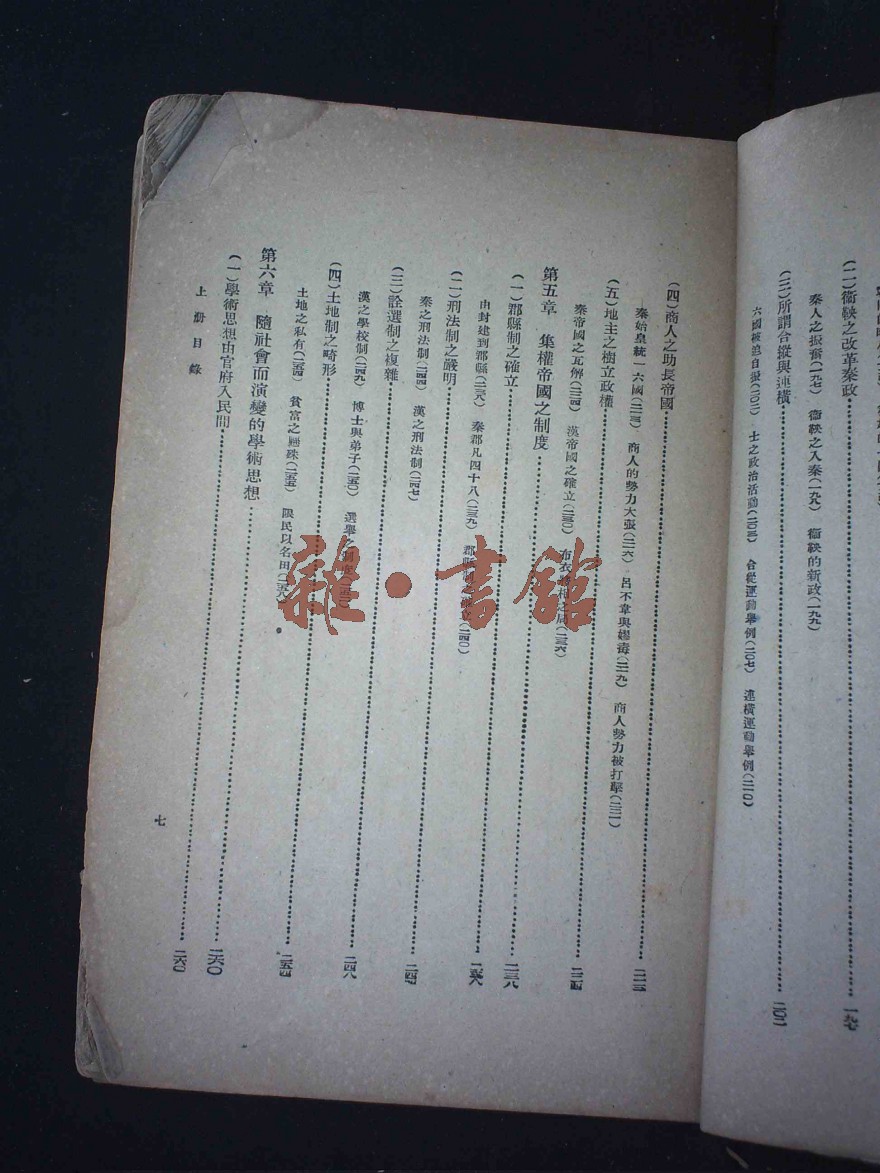 (二)衞鞅之改革秦政……一九七
秦人之振奮(一九七) 衞鞅之入秦(一九八) 衞鞅的新政(一九九)
(三)所謂合縱與連橫……二〇二
六國被迫自振(二〇二) 士之政治活動(二〇三) 合從運動舉例(二〇七) 連橫運動舉例(二一〇)
(四)商人之助長帝國……二一三
秦始皇統一六國(二一三) 商人的勢力大張(二一六) 呂不韋與嫪毐(二一九) 商人勢力被打擊(二二一)
(五)地主之樹立政權……二二四
秦帝國之瓦解(二二四) 漢帝國之確立(二三〇) 布衣將相之局(二三六)
第五章 集權帝國之制度……二三八
(一)郡縣制之確立……二三八
由封建到郡縣(二三八) 秦郡凡四十八(二三九) 郡縣制之確立(二四〇)
(二)刑法制之嚴明……二四四
秦之刑法制(二四四) 漢之刑法制(二四七)
(三)詮選制之複雜……二四八
漢之學校制(二四九) 博士與弟子(二五〇) 選舉之制度
(四)土地制之畸形……二五四
土地之私有(二五四) 貧富之懸殊(二五五) 限民以名田(二五八)
第六章 隨社會而演變的學術思想……二六〇
(一)學術思想由官府入民間……二六〇
上册目錄
七
雜·書館